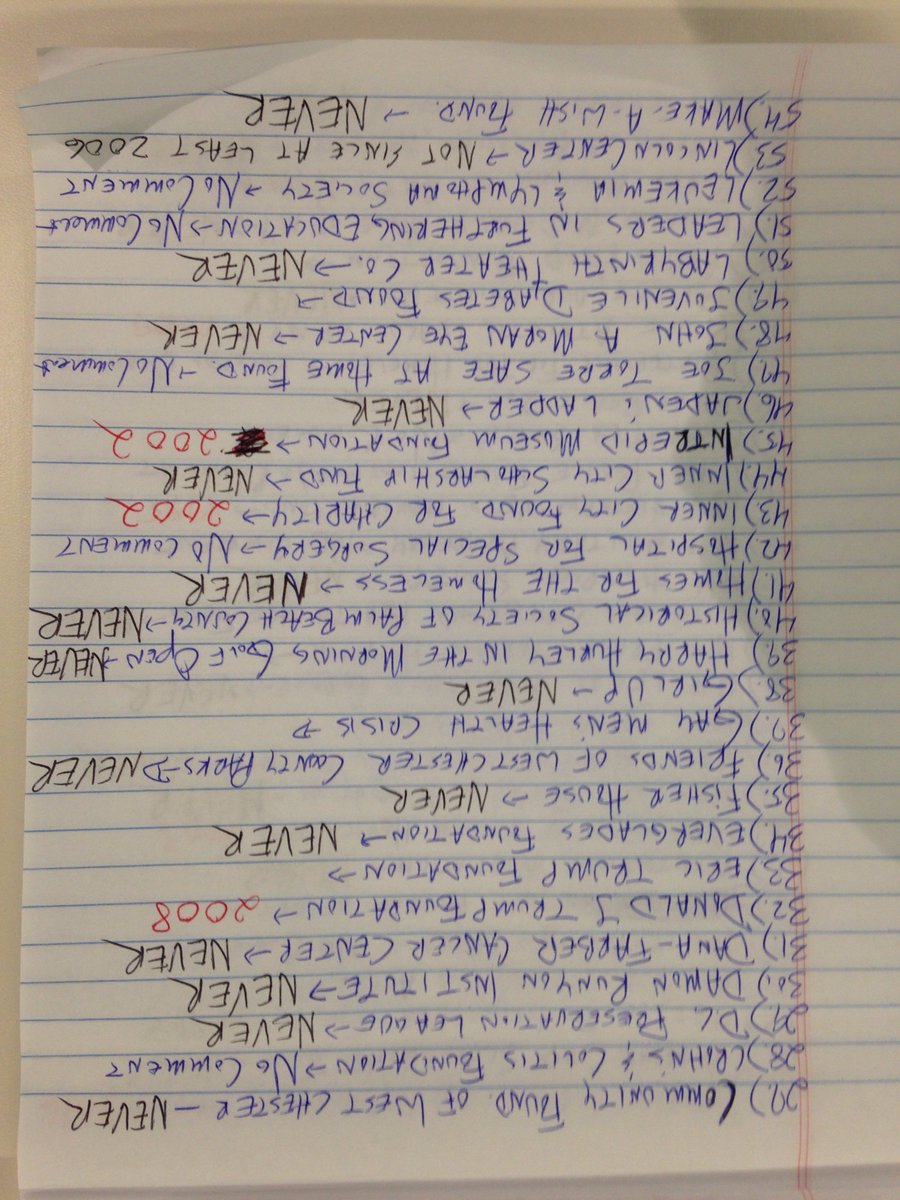 27.) COMMUNITY FOUND. OF WESTCHESTER — NEVER
28.) CROHN'S & COLITIS FOUNDATION → NO COMMENT
29.) D.C. PRESERVATION LEAGUE → NEVER
30.) DAMON RUNYON INSTITUTE → NEVER
31.) DANA-FARBER CANCER CENTER → NEVER
32.) DONALD J TRUMP FOUNDATION → 2008
33.) ERIC TRUMP FOUNDATION →
34.) EVERGLADES FOUNDATION → NEVER
35.) FISHER HOUSE → NEVER
36.) FRIENDS OF WESTCHESTER COUNTY PARKS → NEVER
37.) GAY MEN'S HEALTH CRISIS →
38.) GIRL UP → NEVER
39.) HARRY HURLEY IN THE MORNING GOLF OPEN → NEVER
40.) HISTORICAL SOCIETY OF PALM BEACH COUNTY → NEVER
41.) HOMES FOR THE HOMELESS → NEVER
42.) HOSPITAL FOR SPECIAL SURGERY → NO COMMENT
43.) INNER CITY FOUND. FOR CHARITY → 2002
44.) INNER CITY SCHOLARSHIP FUND → NEVER
45.) INTREPID MUSEUM FOUNDATION → 2002
46.) JADEN'S LADDER → NEVER
47.) JOE TORRE SAFE AT HOME FOUND. → NO COMMENT
48.) JOHN A. MORAN EYE CENTER → NEVER
49.) JUVENILE DIABETES FOUND. →
50.) LABYRINTH THEATER CO. → NEVER
51.) LEADERS IN FURTHERING EDUCATION → NO COMMENT
52.) LEUKEMIA & LYMPHOMA SOCIETY → NO COMMENT
53.) LINCOLN CENTER → NOT SINCE AT LEAST 2006
54.) MAKE-A-WISH FOUND. → NEVER